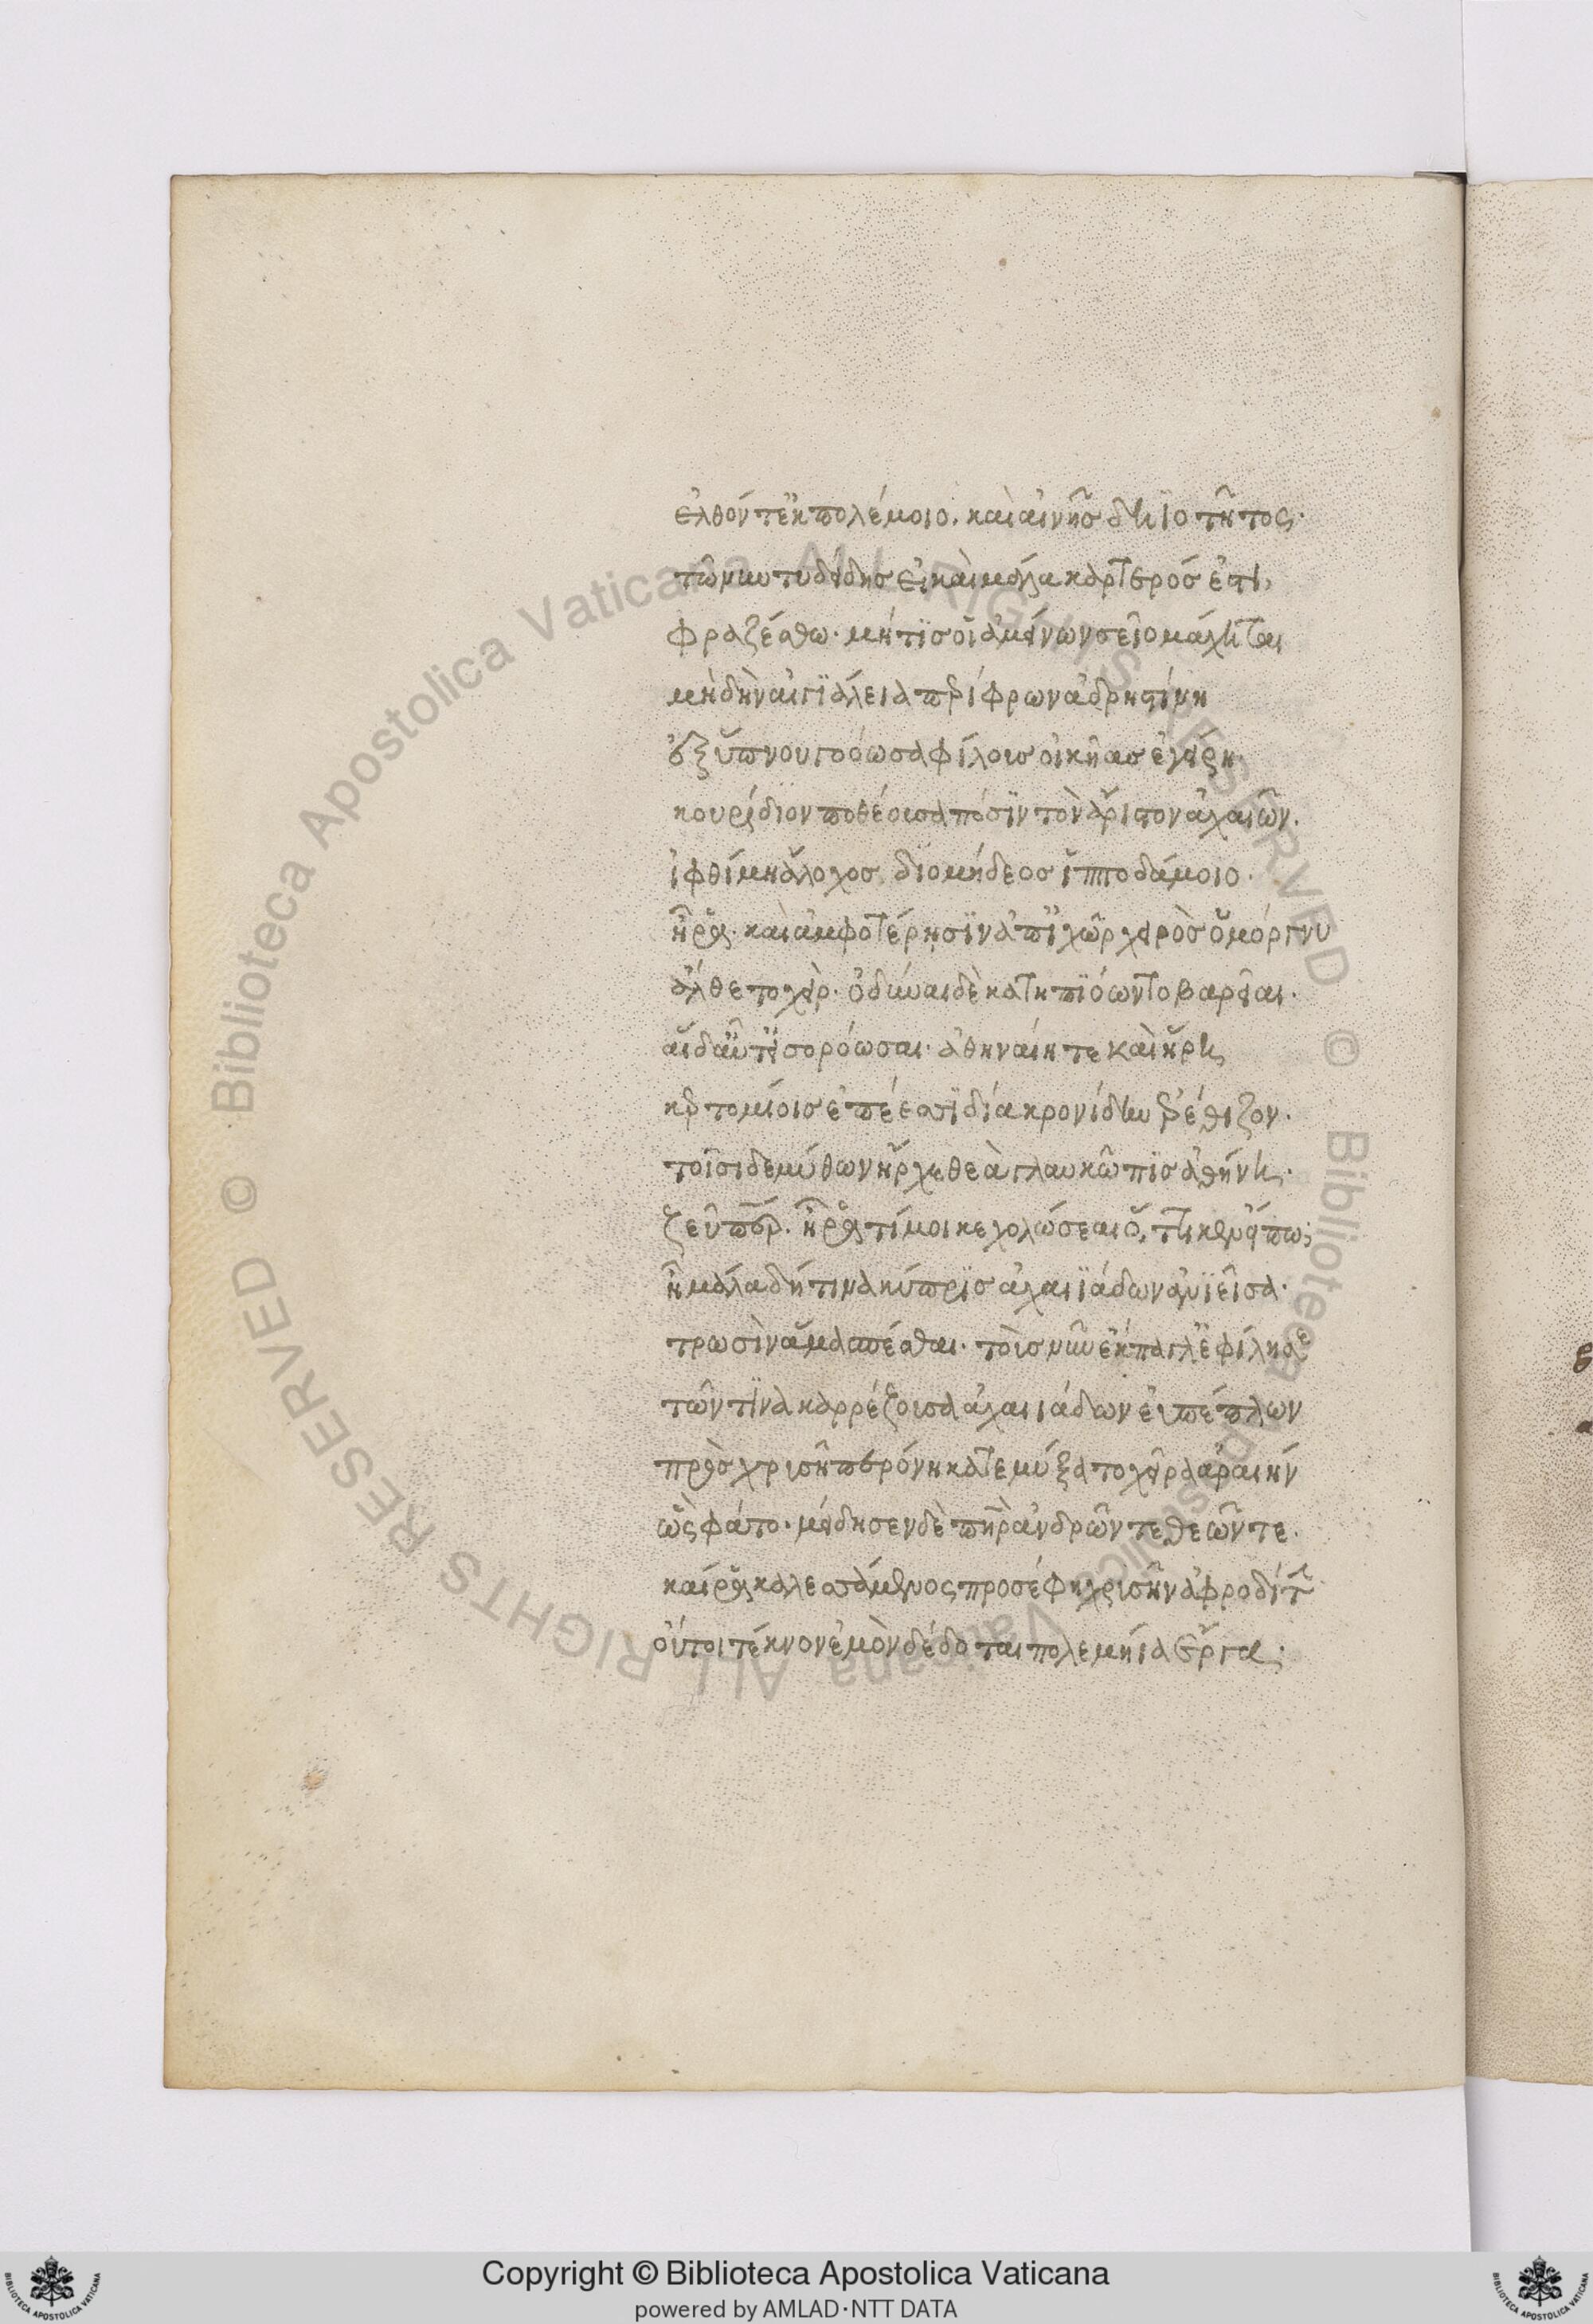 ἐλθόντ' ἐκ πολέμοιο. καὶ αἰνῆσ δηϊοτῆτος·
τῶ νῦν τυδείδησ εἰ καὶ μάλα καρτερόσ ἐστι,
φραζέσθω. μήτϊσ οἱ ἀμείνων σεῖο μάχηται
μὴ δὴν αἰγϊάλεια περίφρων ἀδρηστίνη
ἐξ ὕπνου γοόωσα φίλουσ οἰκῆασ ἐγείρη·
κουρίδϊον ποθέουσα πόσϊν τὸν ἄριστον ἀχαιῶν.
ἰφθίμη ἄλοχοσ διομήδεοσ ἱπποδάμοιο.
ἦ ῥα· καὶ ἀμφοτέρησϊν ἀπ' ἰχῶρ χειρὸσ ὀμόργνυ
ἄλθετο χείρ. ὀδύναι δὲ κατηπϊόωντο βαρεῖαι.
αἱ δ' αὖτ' εἰσορόωσαι· ἀθηναίη τε καὶ ἥρη
κερτομίοισ ἐπέεσσϊ δία κρονίδην ἐρέθιζον.
τοῖσι δε μύθων ἦρχε θεὰ γλαυκῶπϊσ ἀθήνη·
ζεῦ πάτερ. ἦ ῥά τί μοι κεχολώσεαι ὅ,ττι κεν εἴπω;
ἦ μάλα δή τινα κύπρϊσ ἀχαιϊάδων ἀνϊεῖσα·
τρωσὶν ἅμα σπέσθαι. τοὺσ νῦν ἔκπαγλ' ἐφίλησε
τῶν τϊνα καρρέζουσα ἀχαιιάδων εὐπέπλων
πρὸσ χρυσῆ περόνη κατεμύξατο χεῖρα ἀραιήν
ὣς φάτο. μείδησεν δὲ πατὴρ ἀνδρῶν τε θεῶν τε.
καί ῥα καλεσσάμενος προσέφη χρυσῆν ἀφροδίτην
οὔτοι τέκνον ἐμὸν δέδοται πολεμήϊα ἔργα·